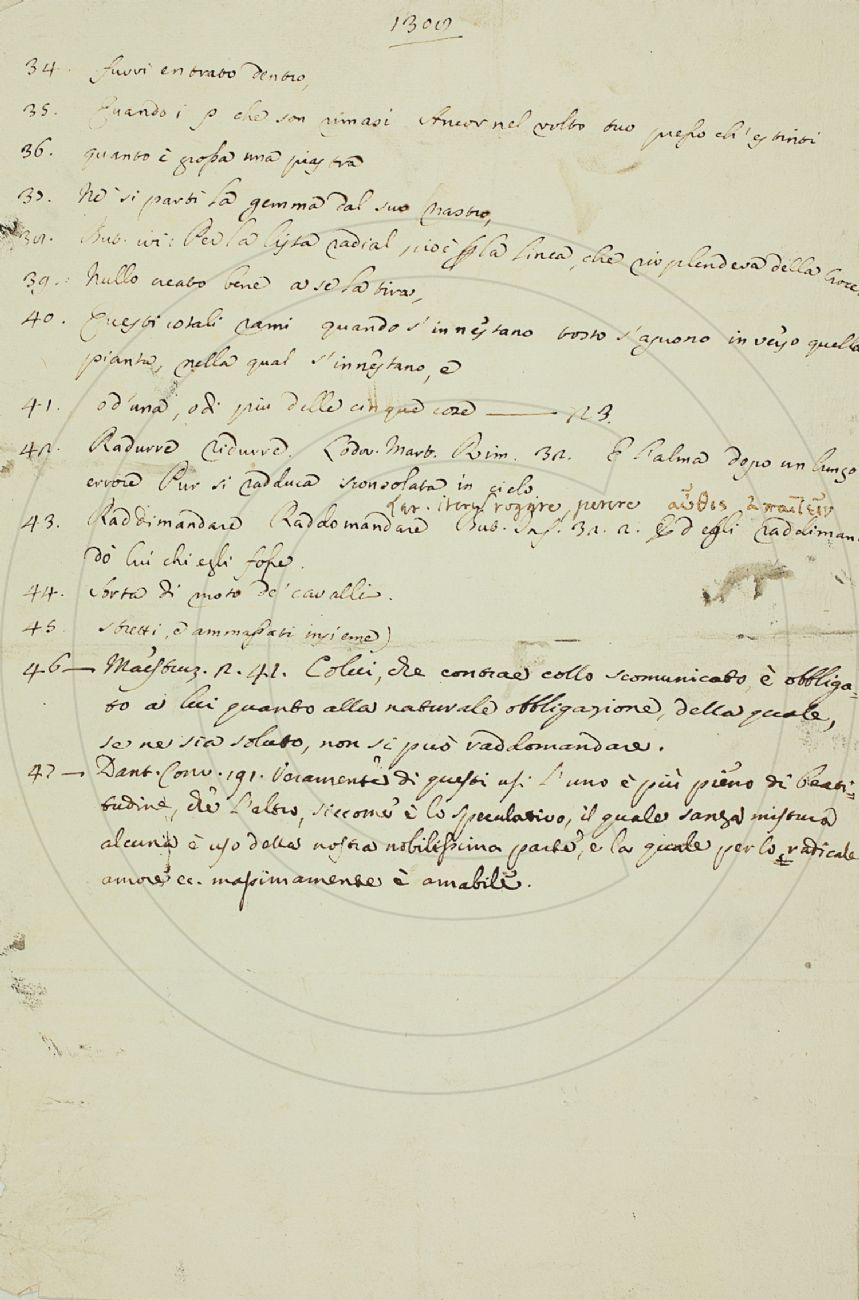 34. fuvvi entrato dentro,
35. Quando i p che son rimasi Ancor nel volto tuo presso ch'estinti
36. quanto è grossa una piastra
37. Nè si partì la gemma dal suo nastro,
38. But. ivi: Per la lista radial, cioè p la linea, che risplendeva della Croce.
39. Nullo creato bene a se la tira,
40. Questi cotali rami quando s'innestano tosto s'aguono in verso quella
pianta, nella qual s'innestano, e
41. o d'una, o di più delle cinque cose —— 123.
42. Radurre Ridurre. Lodov. Mart. Rim. 32. E l'alma dopo un lungo
errore Pur si radduca sconsolata in cielo
Lat. iterum rogare, petere αὖθις ἀπαιτεῖν
43. Raddimandare Raddomandare But. Inf. 32. 2. Ed egli raddiman
dò lui chi egli fosse.
44. sorta di moto de' cavalli.
45. stretti, e ammassati insieme)
46 — Maestruz. 2. 41. Colui, che contrae collo scomunicato, è obbliga=
to a lui quanto alla naturale obbligazione, della quale,
se ne sia soluto, non si può raddomandare.
47 — Dant. Conv. 191. Veramente di questi usi l'uno è più pieno di beati=
tudine, che l'altro, siccome è lo speculativo, il quale sanza mistura
alcuna è uso della nostra nobilissima parte, e la quale per lo radicale
amore ec. massimamente è amabile.